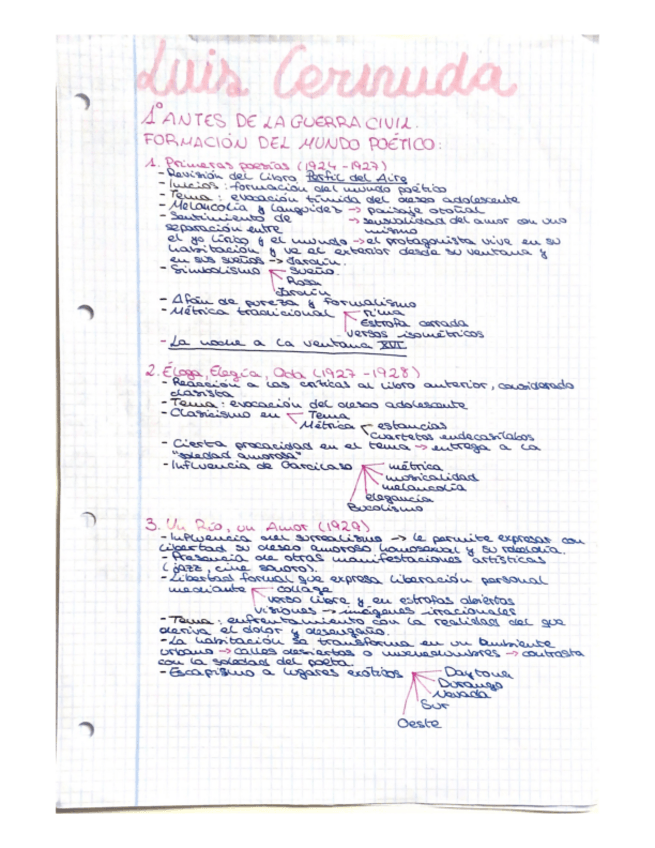 Luis Cernuda
1º ANTES DE LA GUERRA CIVIL.
FORMACIÓN DEL MUNDO POÉTICO:
1. Primeras poesías (1924-1927)
- Revisión del libro Perfil del Aire
- Inicios: formación del mundo poético
- Tema: evocación tímida del deseo adolescente
- Melancolía y languidez → paisaje otoñal
- Sentimiento de → sensualidad del amor con uno
separación entre mismo
el yo lírico y el mundo → el protagonista vive en su
habitación y ve el exterior desde su ventana y
en sus sueños → Jardín.
- Simbolismo Sueño
Rosa
Jardín
- Afán de pureza y formalismo
- Métrica tradicional rima
Estrofa cerrada
versos isométricos
- La noche a la ventana XVI
2. Égloga, Elegía, Oda (1927-1928)
- Reacción a las críticas al libro anterior, considerado
clasista
- Tema: evocación del deseo adolescente
- Clasicismo en Tema
Métrica estancias
Cuartetos endecasílabos
- Cierta procacidad en el tema → entrega a la
"soledad amorosa"
- Influencia de Garcilaso métrica
musicalidad
melancolía
elegancia
Bucolismo
3. Un Río, un Amor (1929)
- Influencia del surrealismo → le permite expresar con
libertad su deseo amoroso homosexual y su rebeldía.
- Presencia de otras manifestaciones artísticas
(jazz, cine sonoro).
- Libertad formal que expresa liberación personal
mediante collage
verso libre y en estrofas abiertas
visiones → imágenes irracionales
- Tema: enfrentamiento con la realidad del que
deriva el dolor y desengaño.
- La habitación se transforma en un ambiente
urbano → calles desiertas o muchedumbres → contrasta
con la soledad del poeta.
- Escapismo a lugares exóticos Daytona
Durango
Nevada
Sur
Oeste